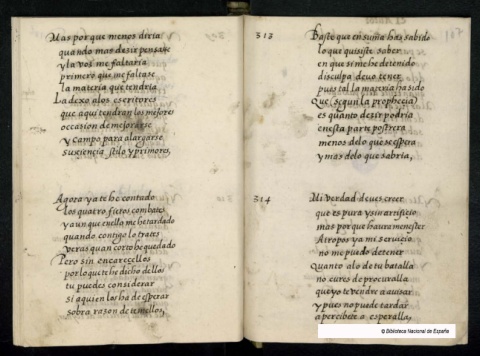 Mas por que menos diria
quando mas dezir pensase
y la voz me faltaria
primero que me faltase
la materia que tendria
La dexo alos escritores
que aqui tendran los mejores
occasion de mejorarse
y campo para alargarse
su sciencia, stilo y primores,
Agora ya te he contado
los quatro fieros combates
y aun que en ella me he tardado
quando contigo lo trates
veras quan corto he quedado
Pero sin encarecellos
por lo que te he dicho dellos
tu puedes considerar
si aquien los ha de esperar
sobra razon de temellos,
107
313
Baste que en suma has sabido
lo que quisiste saber
en que si me he detenido
disculpa devo tener
pues tal la materia ha sido
Que (segun la prophecia)
es quanto dezir podria
en esta parte postrera
menos delo que se espera
y mas delo que sabria,
314
Mi verdad deves creer
que es pura y sin artificio
mas por que haura menester
Atropos ya mi servicio
no me puedo detener
Quanto alo de tu batalla
no cures de procuralla
que yo te vendre a avisar
y pues no puede tardar
apercibete a esperalla,
© Biblioteca Nacional de España